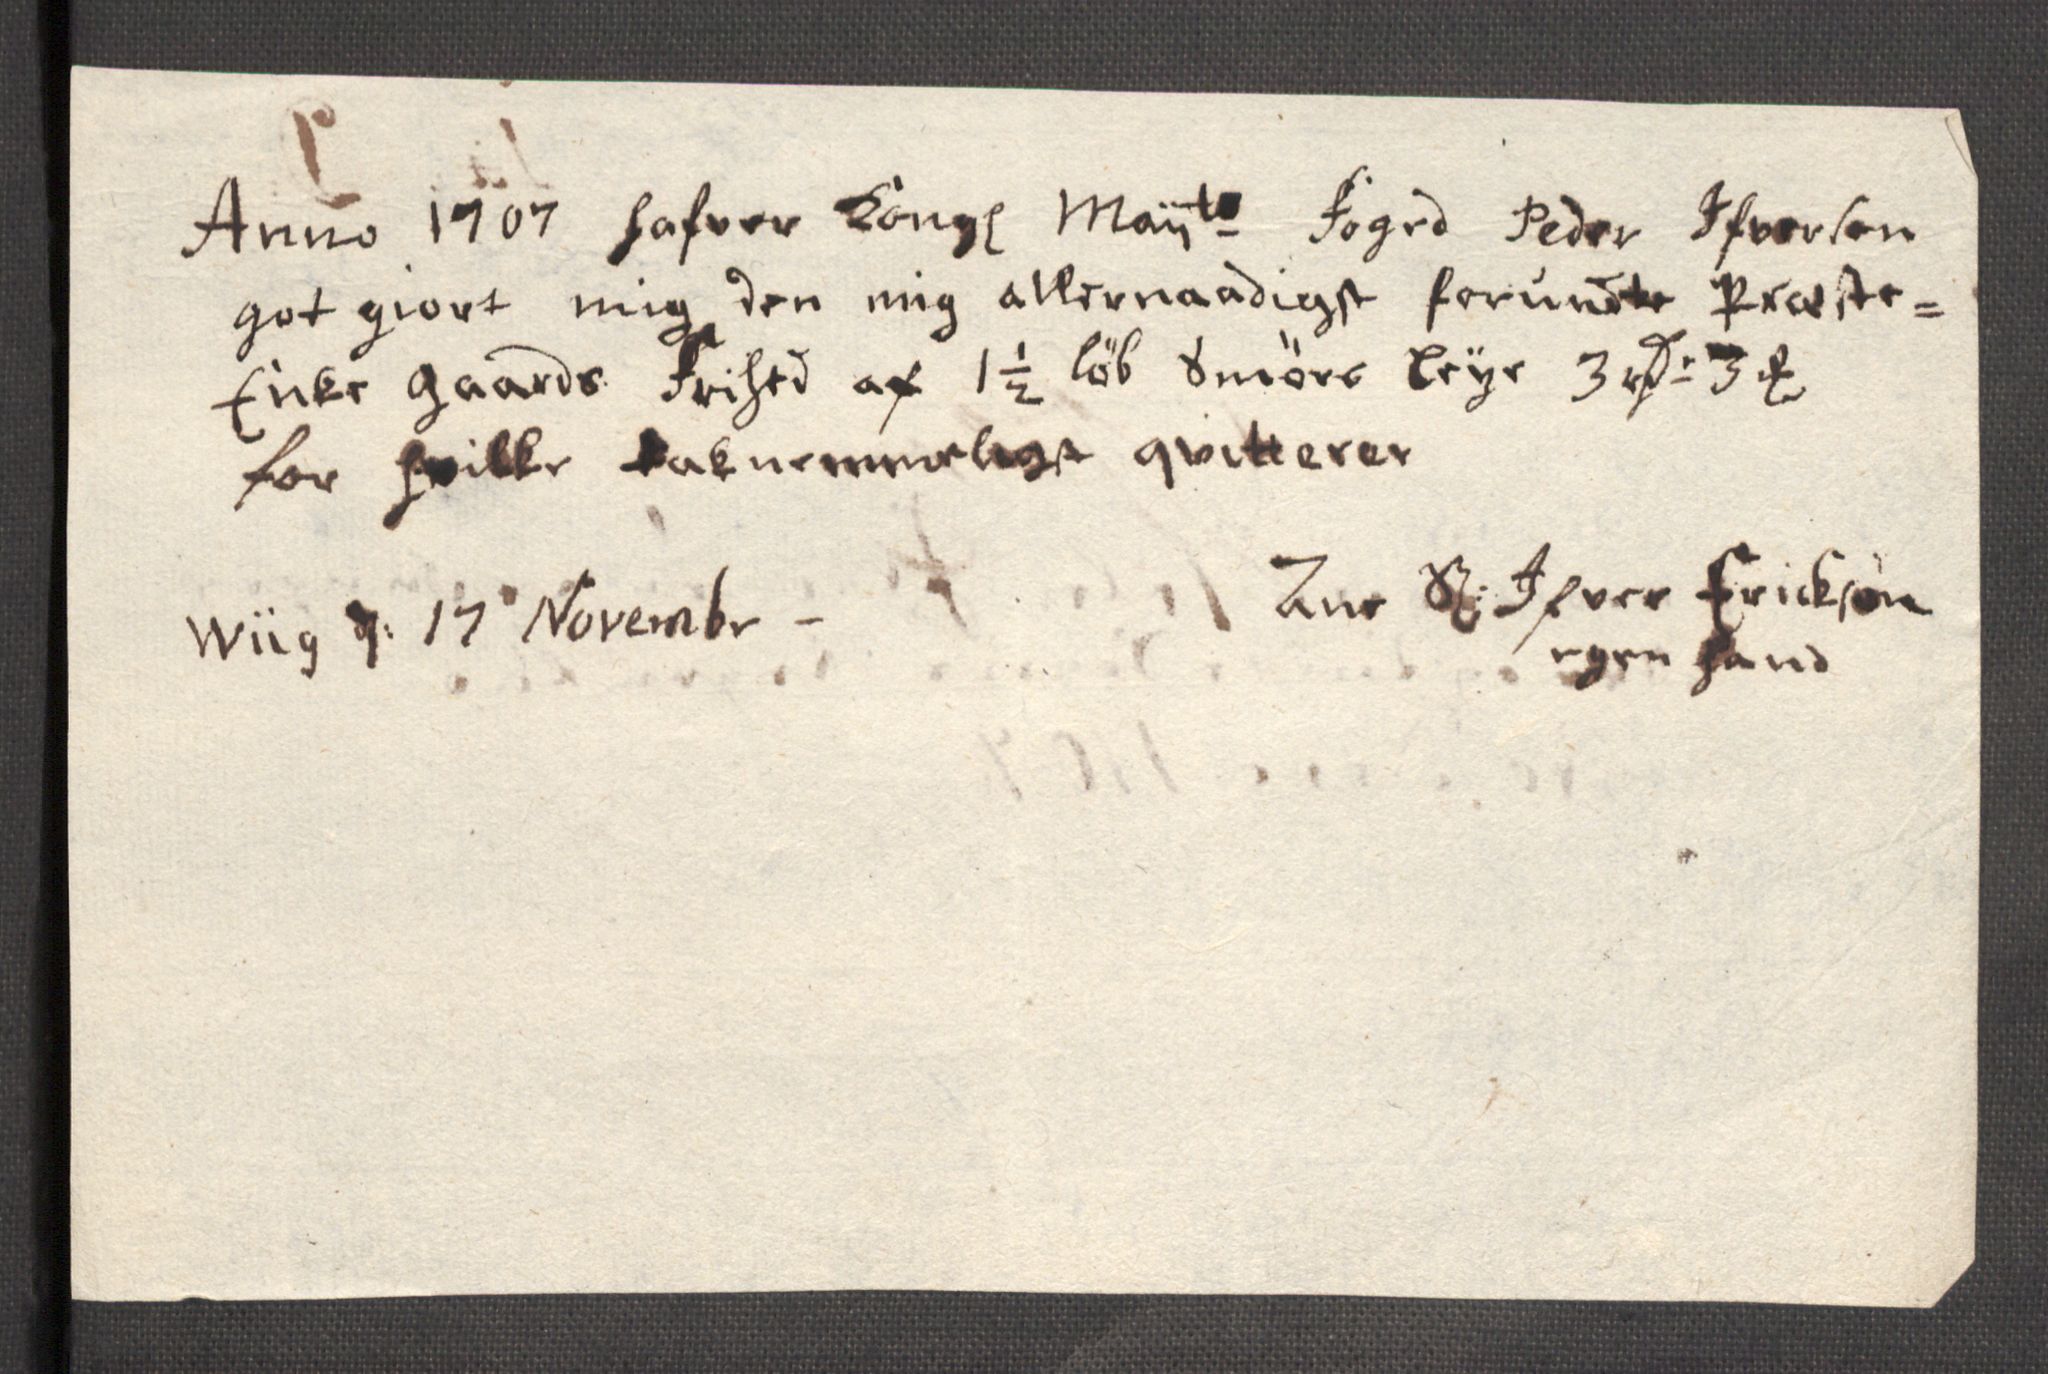 Anno 1707 hafver Kongl Maÿts Foged Peder Ifversen
got giort mig den mig allernaadigst forundte Præste=
Enke gaards Frihed af 1½ löb Smörs leÿe 3 rdr 3 ℔
for hvilke taknemmeligst qvitterer
Wiig d: 17 Novembr –
Sl: Ifver Ericksøn
egen haand